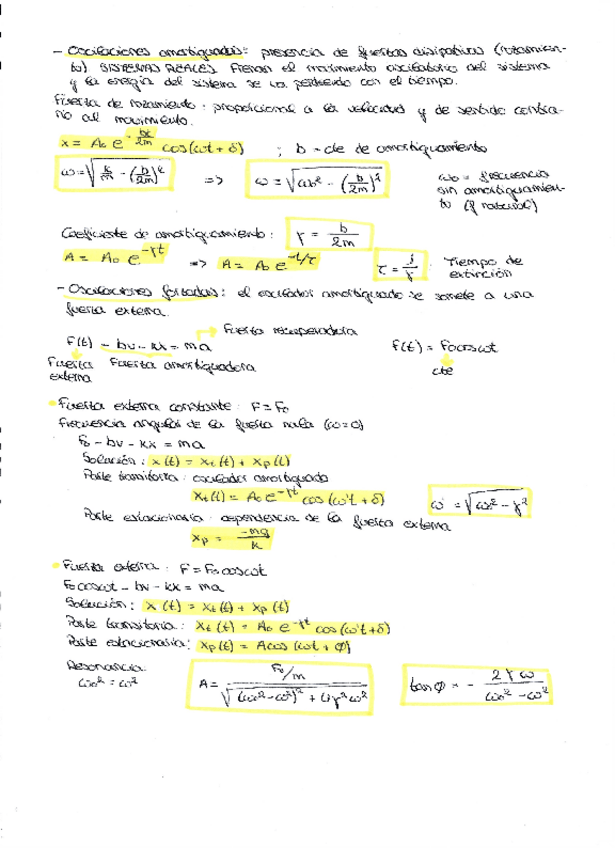 - Oscilaciones amortiguadas: presencia de fuerzas disipativas (rozamien-
to) SISTEMAS REALES. Frenan el movimiento oscilatorio del sistema
y la energía del sistema se va perdiendo con el tiempo.
Fuerza de rozamiento: proporcional a la velocidad y de sentido contra-
rio al movimiento.
x = A₀ e^(-bt/2m) cos(ωt + δ) ; b = cte de amortiguamiento
ω = √(k/m - (b/2m)²) => ω = √(ω₀² - (b/2m)²) ω₀ = frecuencia
sin amortiguamien-
to (f natural)
Coeficiente de amortiguamiento: γ = b/2m
A = A₀ e^(-γt) => A = A₀ e^(-t/τ) τ = 1/γ Tiempo de
extinción
- Oscilaciones forzadas: el oscilador amortiguado se somete a una
fuerza externa.
Fuerza recuperadora
F(t) - bv - kx = ma F(t) = F₀ cos ωt
Fuerza externa Fuerza amortiguadora cte
Fuerza externa constante: F = F₀
Frecuencia angular de la fuerza nula (ω = 0)
F₀ - bv - kx = ma
Solución: x(t) = x_t(t) + x_p(t)
Parte transitoria: oscilador amortiguado
x_t(t) = A₀ e^(-γt) cos(ω't + δ) ω' = √(ω₀² - γ²)
Parte estacionaria: dependencia de la fuerza externa
x_p = -mg/k
Fuerza externa: F = F₀ cos ωt
F₀ cos ωt - bv - kx = ma
Solución: x(t) = x_t(t) + x_p(t)
Parte transitoria: x_t(t) = A₀ e^(-γt) cos(ω't + δ)
Parte estacionaria: x_p(t) = A cos(ωt + φ)
Resonancia:
ω₀² = ω²
A = (F₀/m) / √((ω₀² - ω²)² + 4γ²ω²) tan φ = - 2γω / (ω₀² - ω²)